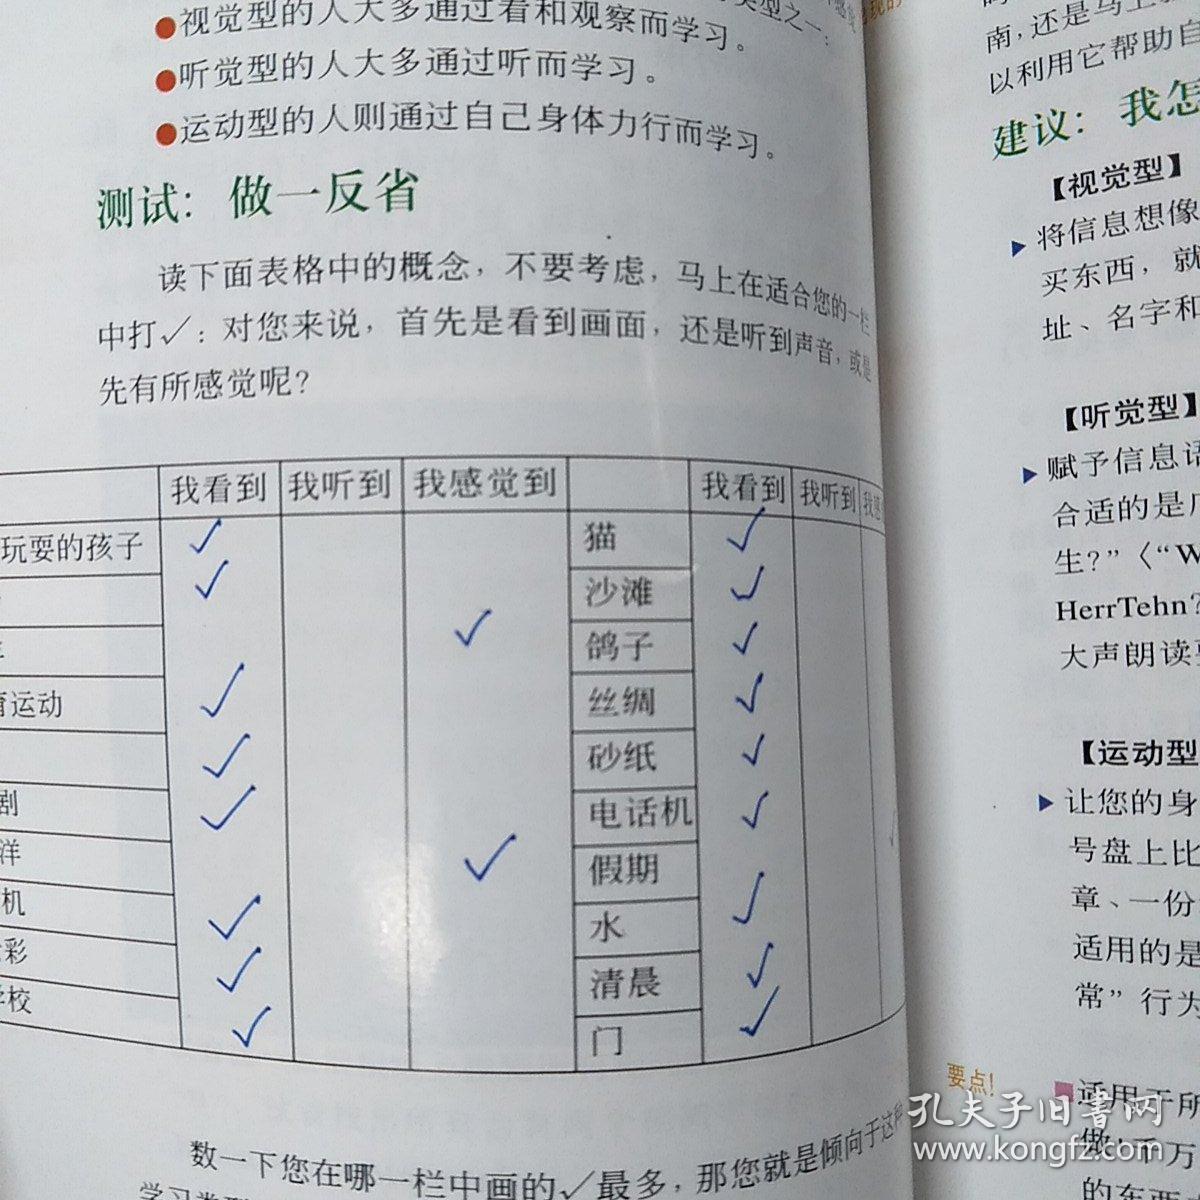 类型之一：
●视觉型的人大多通过看和观察而学习。
●听觉型的人大多通过听而学习。
●运动型的人则通过自己身体力行而学习。
测试：做一反省
读下面表格中的概念，不要考虑，马上在适合您的一栏
中打✓：对您来说，首先是看到画面，还是听到声音，或是
先有所感觉呢？
我看到 我听到 我感觉到 我看到 我听到 我感
玩耍的孩子 ✓ 猫 ✓
✓ 沙滩 ✓
✓ 鸽子 ✓
运动 ✓ 丝绸 ✓
✓ 砂纸 ✓
剧 ✓ 电话机 ✓
洋 ✓ 假期
机 ✓ 水 ✓
彩 ✓ 清晨 ✓
学校 ✓ 门 ✓
数一下您在哪一栏中画的✓最多，那您就是倾向于这种
学习类型
南，还是马上
以利用它帮助自
建议：我怎
【视觉型】
▶将信息想像
买东西，就
址、名字和
【听觉型】
▶赋予信息语
合适的是
生？”〈“W
HerrTehn？
大声朗读
【运动型
▶让您的身
号盘上比
章、一份
适用的是
常”行为
要点！
■适用于所
做：千万
的东西
孔夫子旧书网
www.kongfz.com